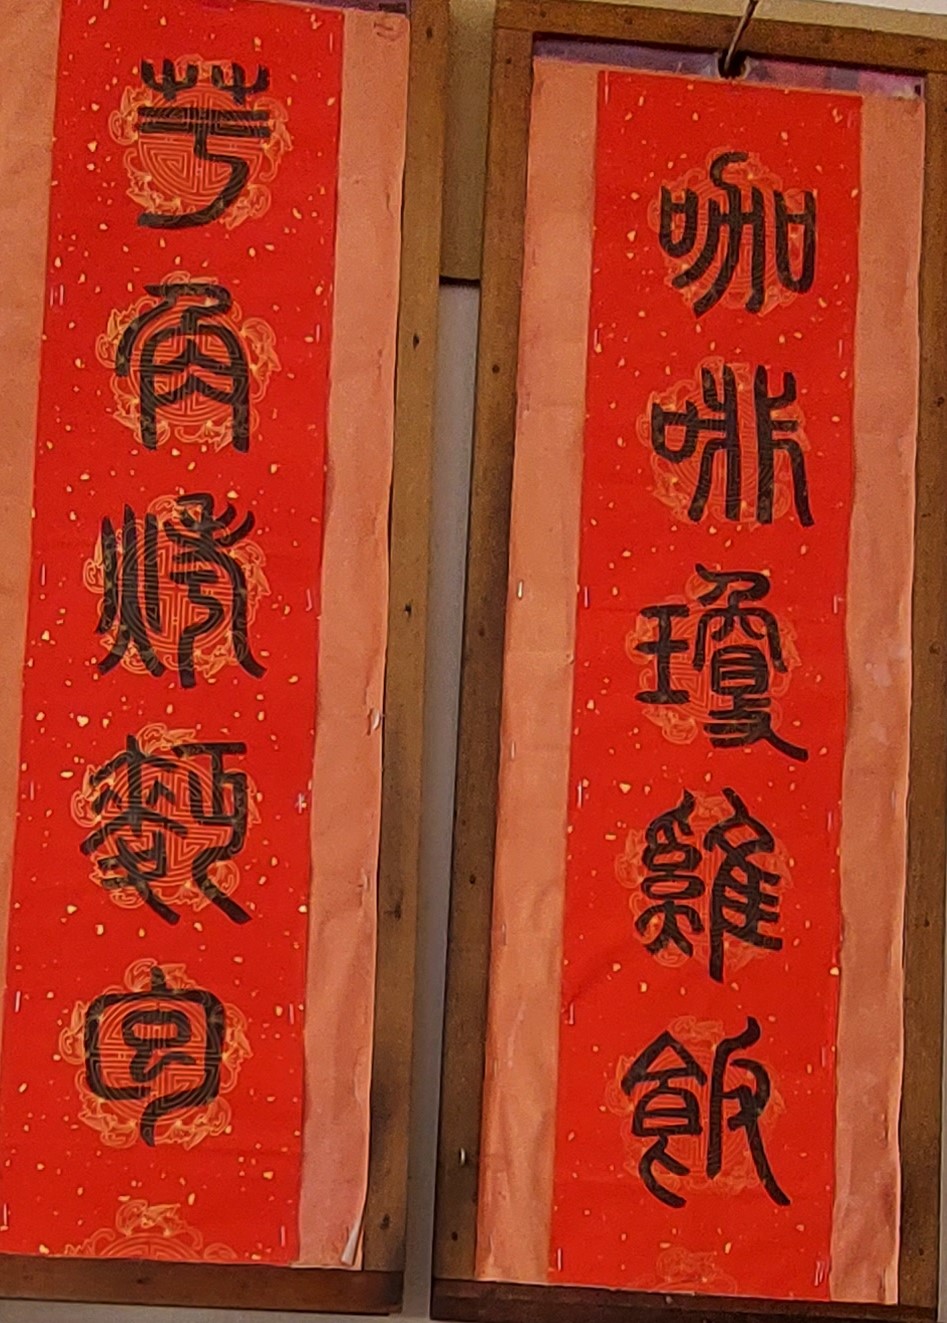 咖啡瓊雞飯
芋角烤麪包